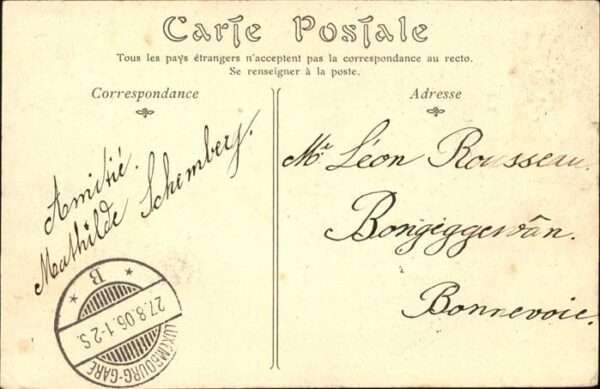 Carte Postale
Tous les pays étrangers n'acceptent pas la correspondance au recto.
Se renseigner à la poste.
Correspondance
Adresse
Amitié.
Mathilde Schemberg.
Mr Léon Rousseau.
Bonnevoie.
B
27.8.06.1-2S.
LUXEMBOURG-GARE